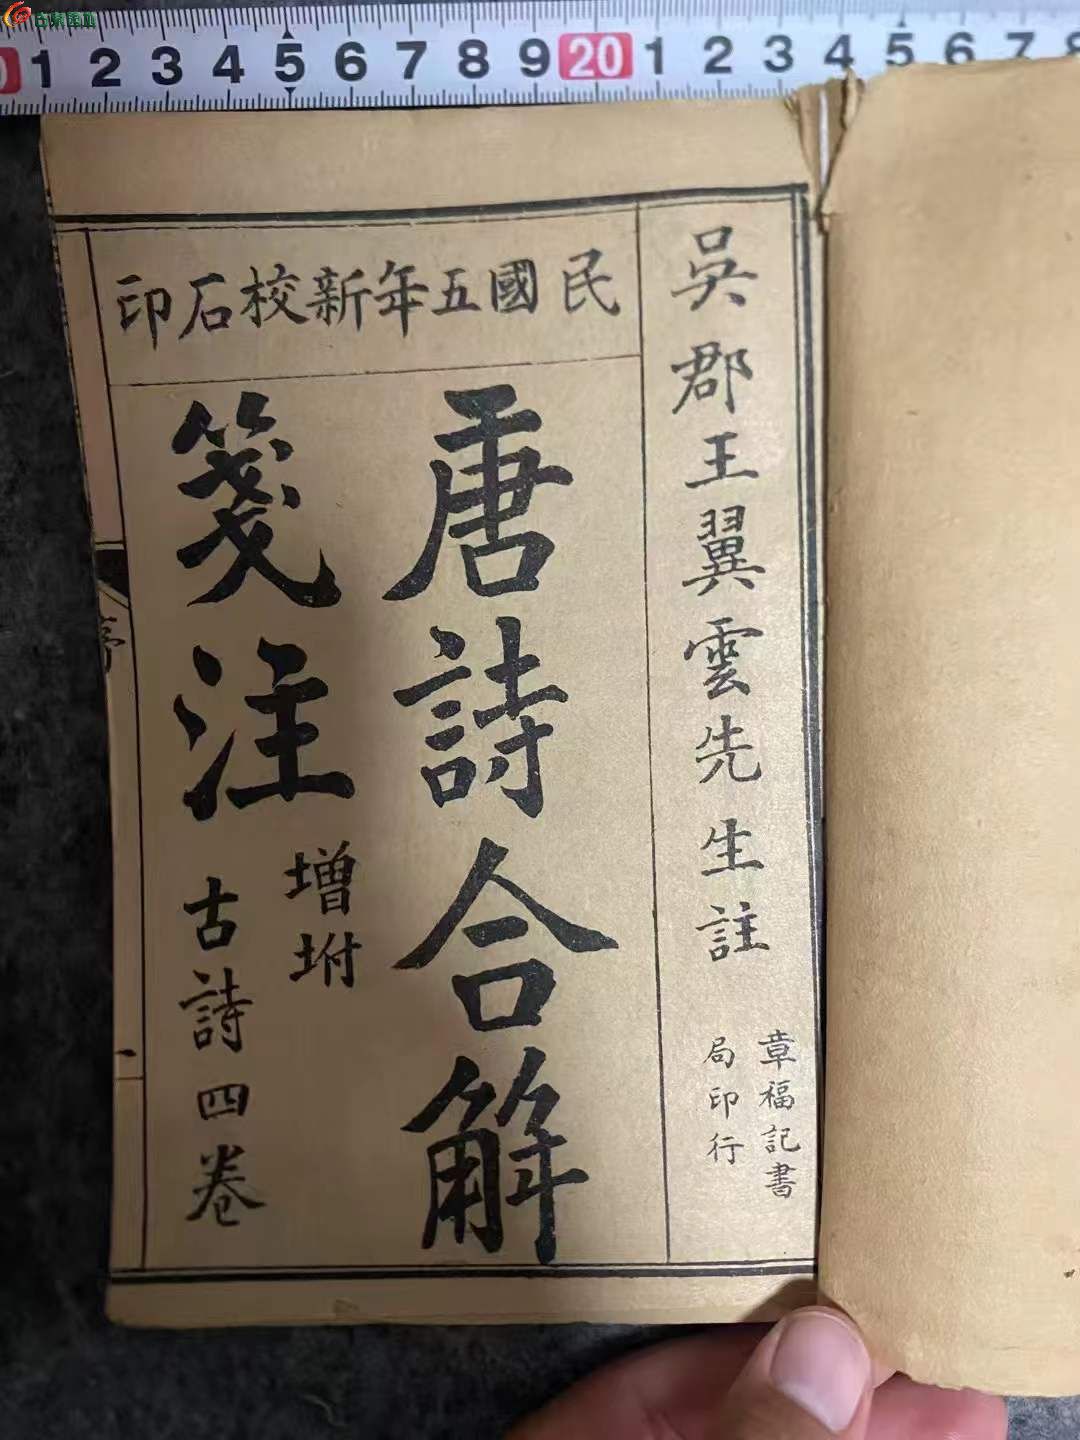 古泉园地
0 1 2 3 4 5 6 7 8 9 20 1 2 3 4 5 6 7 8
民國五年新校石印
吳郡王翼雲先生註
章福記書
局印行
唐詩合解
箋注
增坿
古詩四卷
序
一